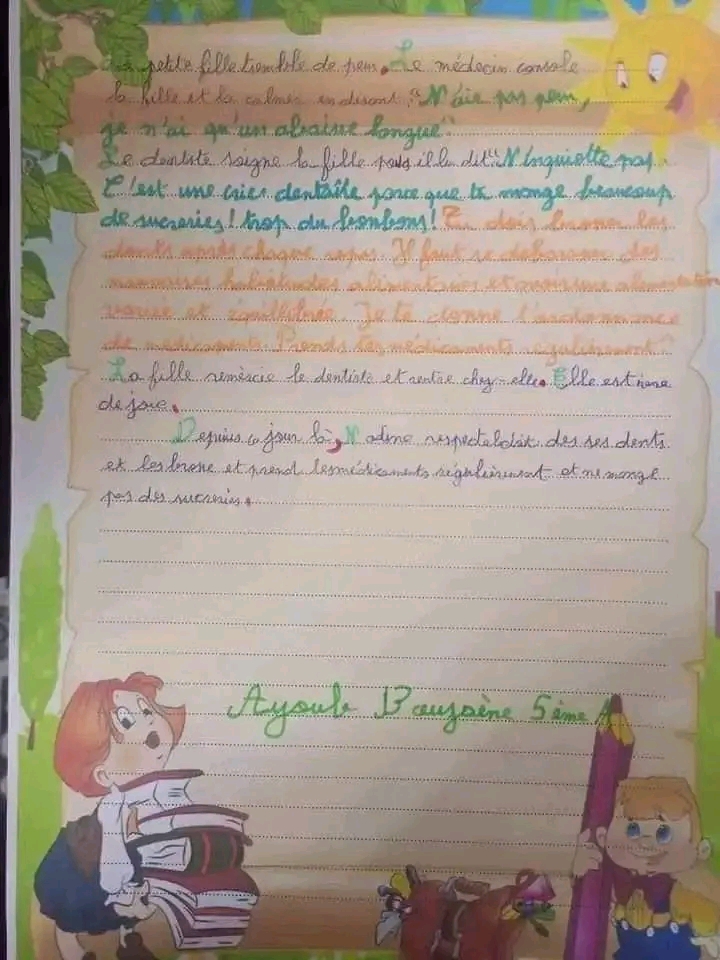 La petite fille tremble de peur. Le médecin console
la fille et la calmer en disant : "N'aie pas peur,
je n'ai qu'un abaisse langue".
Le dentiste soigne la fille puis il lui dit "N'inquiette pas.
C'est une carier dentaile parce que tu mange beaucoup
de sucreries! trop du bonbons! Tu dois brosser les
dents après chaque repas. Il faut se debarasser des
mauvaises habitudes alimentaires et avoir une alimentation
variée et équilibrée. Je te donne l'ordonnance
de médicaments. Prends tes médicaments régulièrement"
La fille remèrcie le dentiste et rentre chez-elle. Elle est ivre
de joie.
Depuis ce jour là, Nadine respecte des ses dents
et les brosse et prend les médicaments régulièrement et ne mange
pas des sucreries.
Ayoub 5ème A